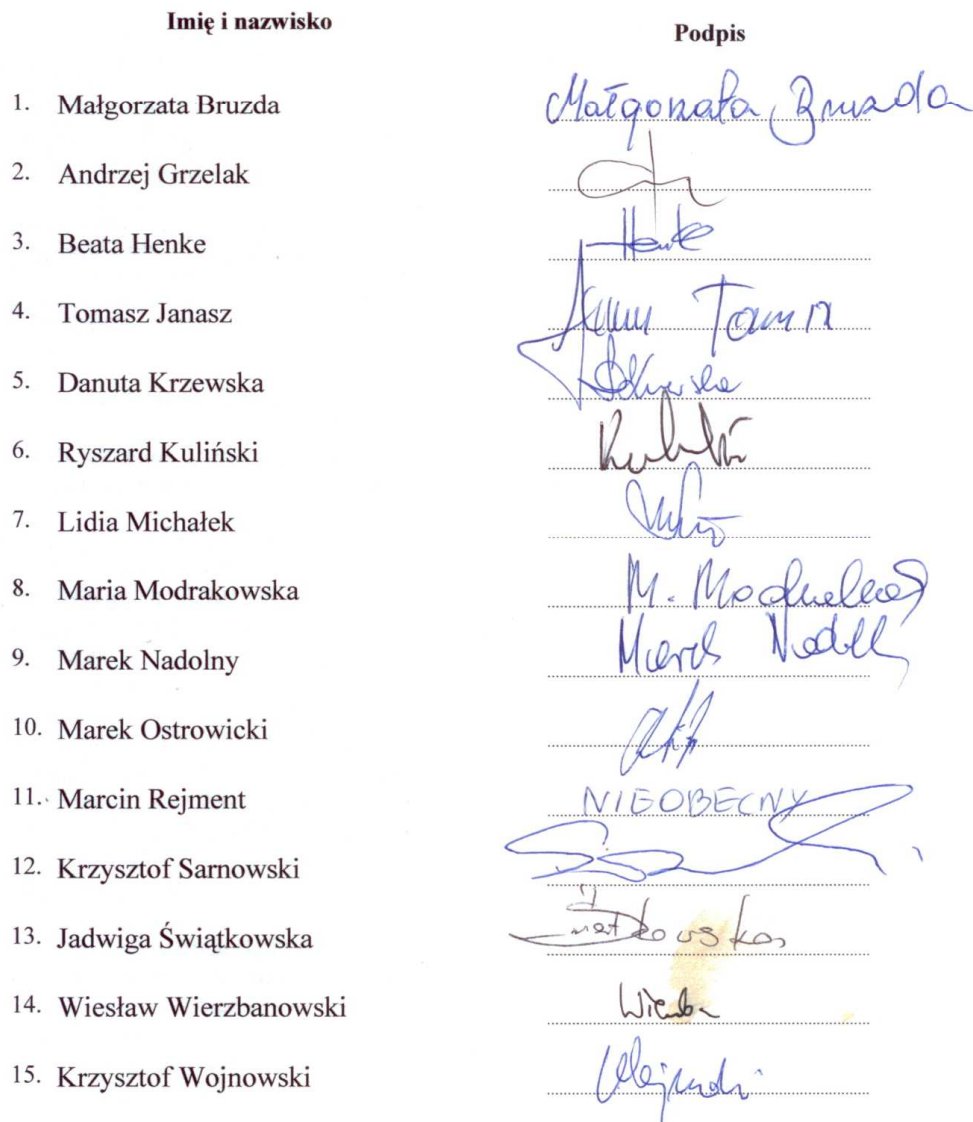 Imię i nazwisko Podpis
1. Małgorzata Bruzda Małgorzata Bruzda
2. Andrzej Grzelak
3. Beata Henke Henke
4. Tomasz Janasz
5. Danuta Krzewska
6. Ryszard Kuliński
7. Lidia Michałek
8. Maria Modrakowska M.
9. Marek Nadolny Marek
10. Marek Ostrowicki
11. Marcin Rejment NIEOBECNY
12. Krzysztof Sarnowski
13. Jadwiga Świątkowska
14. Wiesław Wierzbanowski
15. Krzysztof Wojnowski